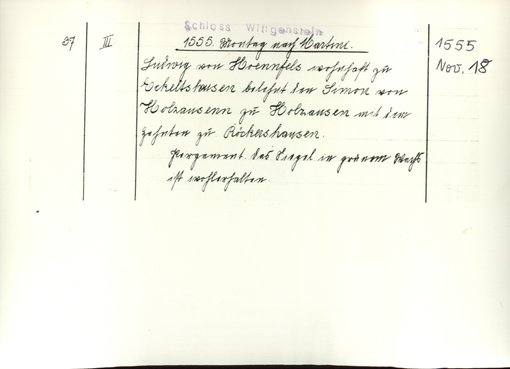 Schloss Wittgenstein
37 III 1555. Montag nach Martini. 1555
Ludwig von Hoennfels wohnhaft zu Nov. 18
Eckeltshausen belehnt den Simon von
Holzausenn zu Holzausen mit dem
zehnten zu Röckershausen.
Pergament. Das Siegel in grünem Wachs
ist wohlerhalten.